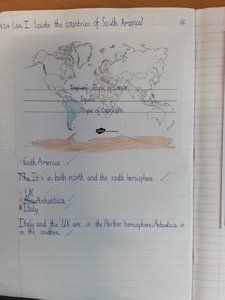 Can I locate the countries of South America?
Tropic of Cancer
Equator
Tropic of Capricorn
twinkl
South America
The It's in both north and the south hemisphere.
UK
Antarctica
Italy
Italy and the UK are in the Northen hemisphere. Antarctica is
in the southern.